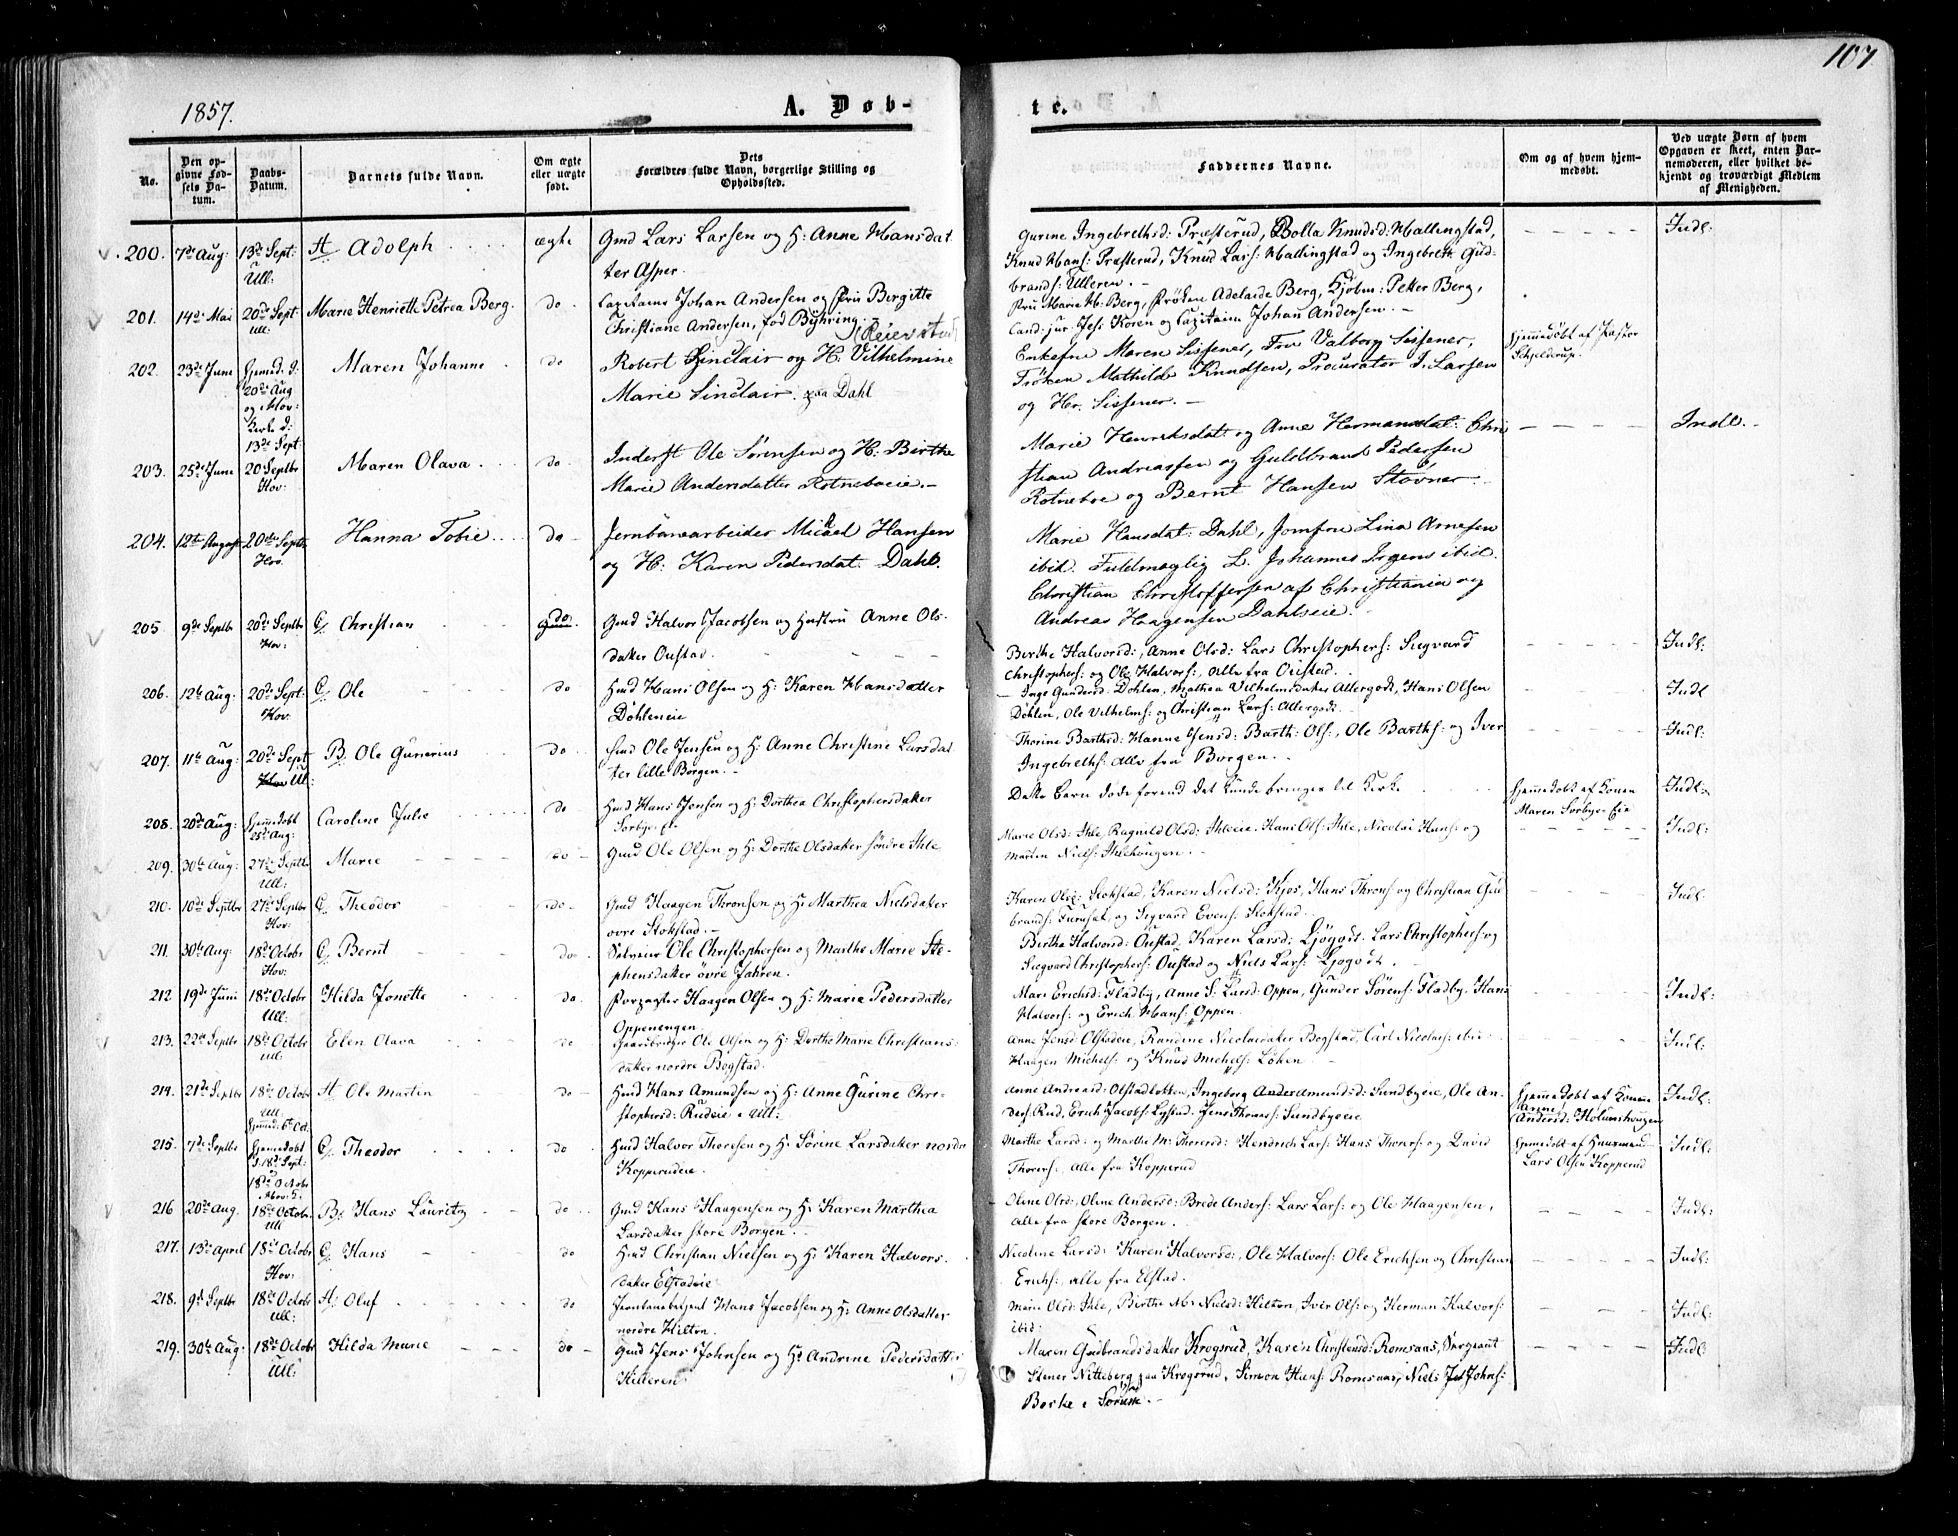 107
1857.
A. Døb-
te.
No.
Den op-
givne Fød-
sels Da-
tum.
Daabs-
Datum.
Barnets fulde Navn.
Om ægte
eller uægte
født.
Dets
Forældres fulde Navn, borgerlige Stilling og
Opholdssted.
Faddernes Navne.
Om og af hvem hjem-
medøbt.
Ved uægte Børn af hvem
Opgaven er skeet, enten Bar-
nemoderen, eller hvilket be-
kjendt og troværdigt Medlem
af Menigheden.
200. 7de Aug: 13de Sept: Ull: A Adolph ægte
Gmd Lars Larsen og H: Anne Hansdat
ter Asper.
Gurine Ingebrethsd: Præsterud, Bolla Knudsd: Hallingstad,
Knud Hans: Præsterud, Knud Lars: Hallingstad og Ingebreth Gud-
brands: Ulleren.
Indl:
201. 14de Mai 20de Sept Ull: Marie Henriette Petrea Berg. do.
Capitaine Johan Andersen og Fru Bergitte
Christiane Andersen, fød Byhring.
(Reierstad)
Fru Marie M: Berg, Frøken Adelaide Berg, Kjøbm: Petter Berg,
Cand: jur: Jes: Koren og Capitaine Johan Andersen.
202. 23de Juni Hjemd. d: 20de Aug og Hov: Kirke d: 13de Sept Maren Johanne do
Robert Sinclair og H. Vilhelmine
Marie Sinclair. paa Dahl
Enkefru Maren Sissener, Fru Valborg Sissener,
Frøken Mathilde Knudsen, Procurator J. Larsen
og Hr. Sissener.
Hjemmedøbt af Pastor
Schjelderup.
203. 25de Juni 20 Septbr Hov: Maren Olava do
Inderst Ole Sørensen og H: Birthe
Marie Andersdatter Rotneboeie.
Marie Henriksdat: og Anne Hermansdat: Chri
stian Andreassen og Guldbrand Pedersen
Rotneboe og Bernt Hansen Støvner
Indl.
204. 12te August 20de Septb Hov. Hanna Tobie do
Jernbanearbeider Michael Hansen
og H: Karen Pedersdat. Dahl.
Marie Hansdat: Dahl, Jomfru Lina Arnesen
ibid. Fuldmægtig L. Johannes Irgens ibid.
Christian Christoffersen af Christiania og
Andreas Haagensen Dahlseie.
205 9de Septbr 20de Septbr Hov: C. Christian do.
Gmd Halvor Jacobsen og Hustru Anne Ols-
datter Oustad.
Birthe Halvorsd:, Anne Olsd: Lars Christophers: Siegvard
Christophers: og Ole Halvors:, alle fra Oustad.
Indl:
206. 12te Aug: 20de Sept: Hov: C. Ole do
Hmd Hans Olsen og H: Karen Hansdatter
Døhleneie
Inge Gundersd: Døhlen, Mathea Vilhelmsdatter Allergodt, Hans Olsen
Døhlen, Ole Vilhelms: og Christian Lars: Allergodt.
Indl
207. 11te Aug: 20de Sept Ull: B. Ole Gunerius do
Hmd Ole Jensen og H: Anne Christine Larsdat
ter lille Borgen.
Thorine Barthsd: Hanne Jensd: Barth: Ols:, Ole Barths: og Iver
Ingebreths: alle fra Borgen.
Indl:
208. 20de Aug: Hjemmedøbt 25de Aug: Caroline Julie do
Hmd Hans Jensen og H: Dorthea Christophersdatter
Sorbye E.
Dette Barn døde forend det kunde bringes til Kirke
Hjemmedøbt af Konen
Maren Sorbye Eie
Indl:
209. 30te Aug: 27de Septbr Ull: Marie do
Gmd Ole Olsen og H: Dorthe Olsdatter søndre Ihle
Marie Olsd: Ihle, Ragnild Olsd: Ihleeie, Hans Ols: Ihle, Nicolai Hans: og
Morten Niels: Ihlehougen.
Indl:
210. 10de Septbr 27de Septbr Hov: C. Theodor do
Gmd Haagen Thronsen og H: Marthea Nielsdatter
øvre Stokstad.
Karen Olsd: Stokstad, Karen Nielsd: Kjos, Hans Throns: og Christian Gud
brands: Furuset, og Sigvard Evens: Stokstad.
Indl:
211. 30te Aug: 18de Octobr Hov: C. Bernt do
Selveier Ole Christophersen og Marthe Marie Ste-
phensdatter øvre Jahren.
Birthe Halvorsd: Oustad, Karen Larsd: Ljøgodt. Lars Christophers: og
Siegvard Christophers: Oustad og Niels Lars: Ljøgodt.
212 19de Juni 18de Octobr Ull: Hilda Jonette do.
Forpagter Haagen Olsen og H: Maria Pedersdatter
Oppenengen.
Mari Erichsd: Fladby, Anne S: Larsd: Oppen, Gunder Sørens: Fladby, Hans
Halvors: og Erich Hans: Oppen.
Indl:
213. 22de Septbr 18de Octobr Ull: Elen Olava do
Gaardbruger Ole Olsen og H: Dorthe Marie Christians-
datter nordre Bogstad.
Anne Jensd: Olstadeie, Randine Nicolaidatter Bogstad, Carl Nicolais: ibid:
Haagen Michels: og Knud Michels: Løken
Indl:
214. 21de Septbr 18de Octobr Ull: Hjemmd: 6te Oct. A. Ole Martin do
Hmd Hans Amundsen og H: Anne Gurine Chri-
stophersd: Rudeie i Ull:
Anne Andreasd: Olstadløkken, Ingeborg Anders Amundsd: Sundbyeie, Ole An-
ders: Rud, Erich Jacobs: Lystad, Jens Thomas: Sundbyeeie
Hjemmedøbt af Konen
Anne
Andersd: Holumshougen
Indl:
215. 7de Septbr Hjemmedøbt d. 18de Sept: 18de Octobr Hov: K. C. Theodor do
Hmd Halvor Thoresen og H: Sørine Larsdatter nordre
Kopperudeie.
Marthe Larsd: og Marthe M: Thoresd: Hendrich Lars: Hans Thores: og David
Thores:, alle fra Kopperud
Hjemmedøbt af Huusmand
Lars Olsen Kopperud
Indl:
216 20de Aug. 18de Octobr. Ull B. Hans Lauritz do
Gmd Hans Haagensen og H: Karen Marthea
Larsdatter store Borgen.
Oline Olsd: Oline Andersd: Brede Anders: Lars Lars: og Ole Haagensen,
alle fra store Borgen.
Indl:
217. 13de April 18de Octobr Hov: C. Hans do
Hmd Christian Nielsen og H: Karen Halvors.
datter Elstadeie
Nicoline Larsd: Karen Halvorsd:, Ole Halvors: Ole Erichsen og Christian
Erichs:, alle fra Elstad.
Indl:
218. 9de Septbr 18de Octobr Ull: A: Oluf do
Jernbanebetjent Hans Jacobsen og H: Anne Olsdatter
nordre Hilton.
Marie Olsd: Ihle, Birthe M: Nielsd: Hilton, Iver Ols: og Herman Halvors:
ibid:
Indl:
219. 30te Aug: 18de Octobr Ull: Hilda Marie do
Gmd Jens Johnsen og H: Andrine Pedersdatter
Hilleren
Maren Gudbrandsdatter Krogsrud, Karen Christensd: Romsaas, Sergeant
Stener Nitteberg paa Krogsrud, Simon Hans: Romsaas, Niels Johns:
Borke i Sørum.
Indl